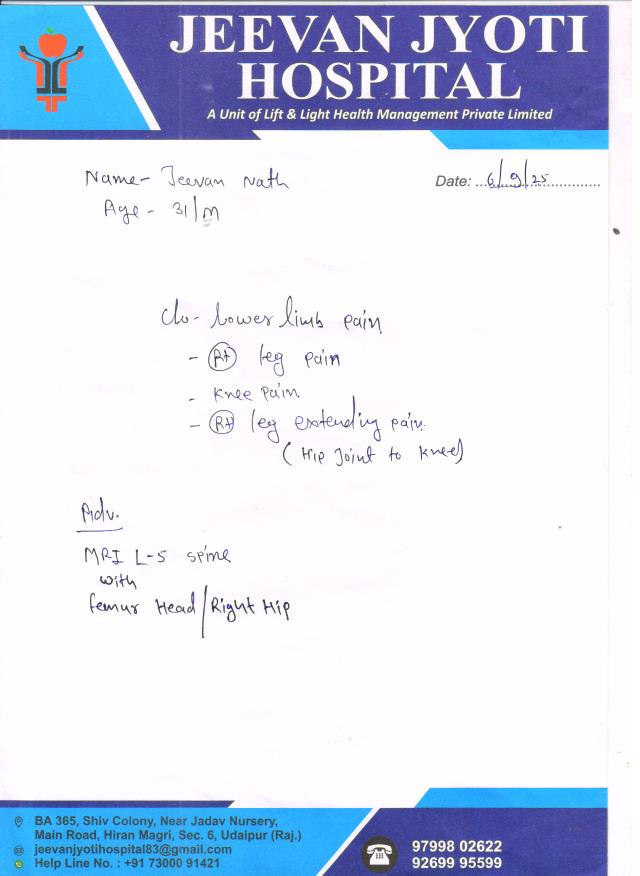 JEEVAN JYOTI
HOSPITAL
A Unit of Lift & Light Health Management Private Limited
Name- Jeevan Nath
Date: 6/9/25
Age - 31/M
C/o- Lower limb pain
- Rt leg pain
- Knee pain
- Rt leg extending pain.
(Hip Joint to Knee)
Adv.
MRI L-S spine
with
femur Head/Right Hip
BA 365, Shiv Colony, Near Jadav Nursery,
Main Road, Hiran Magri, Sec. 6, Udaipur (Raj.)
jeevanjyotihospital83@gmail.com
Help Line No. : +91 73000 91421
97998 02622
92699 95599